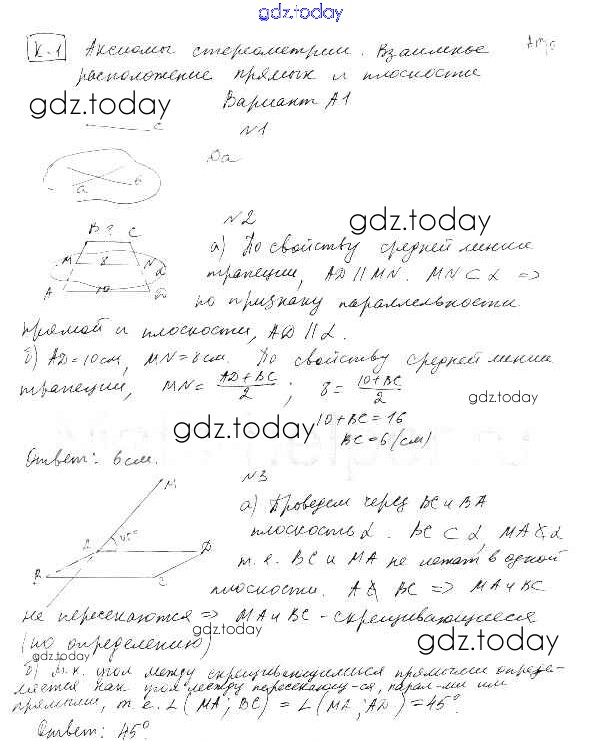 gdz.today
К-1 Аксиомы стереометрии. Взаимное
расположение прямых и плоскости
gdz.today
Вариант А1
c
N1
Да
a b
N2
gdz.today
B ? C
M 8 N α
A 10 D
а) По свойству средней линии
трапеции, AD || MN. MN ⊂ α ⇒
по признаку параллельности
прямой и плоскости, AD || α.
б) AD = 10 см, MN = 8 см. По свойству средней линии
трапеции, MN = (AD + BC)/2 ; 8 = (10 + BC)/2
gdz.today
10 + BC = 16
gdz.today
BC = 6 (см)
Ответ: 6 см.
N3
M
A 45° D
B C
а) Проведем через BC и BA
плоскость α. BC ⊂ α, MA ⊄ α
т. е. BC и MA не лежат в одной
плоскости. A ∉ BC ⇒ MA и BC
не пересекаются ⇒ MA и BC - скрещивающиеся
(по определению)
gdz.today
gdz.today
gdz.today
б) т.к. угол между скрещивающимися прямыми опреде-
ляется как угол между пересекающ-ся, парал-ми им
прямыми, т е. ∠(MA; BC) = ∠(MA; AD) = 45°.
Ответ: 45°